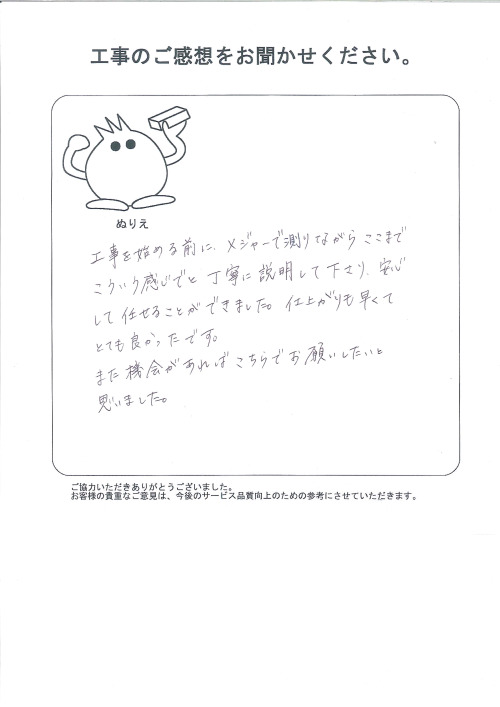 工事のご感想をお聞かせください。
ぬりえ
工事を始める前に、メジャーで測りながらここまで
こういう感じでと丁寧に説明して下さり、安心
して任せることができました。仕上がりも早くて
とても良かったです。
また機会があればこちらでお願いしたいと
思いました。
ご協力いただきありがとうございました。
お客様の貴重なご意見は、今後のサービス品質向上のための参考にさせていただきます。